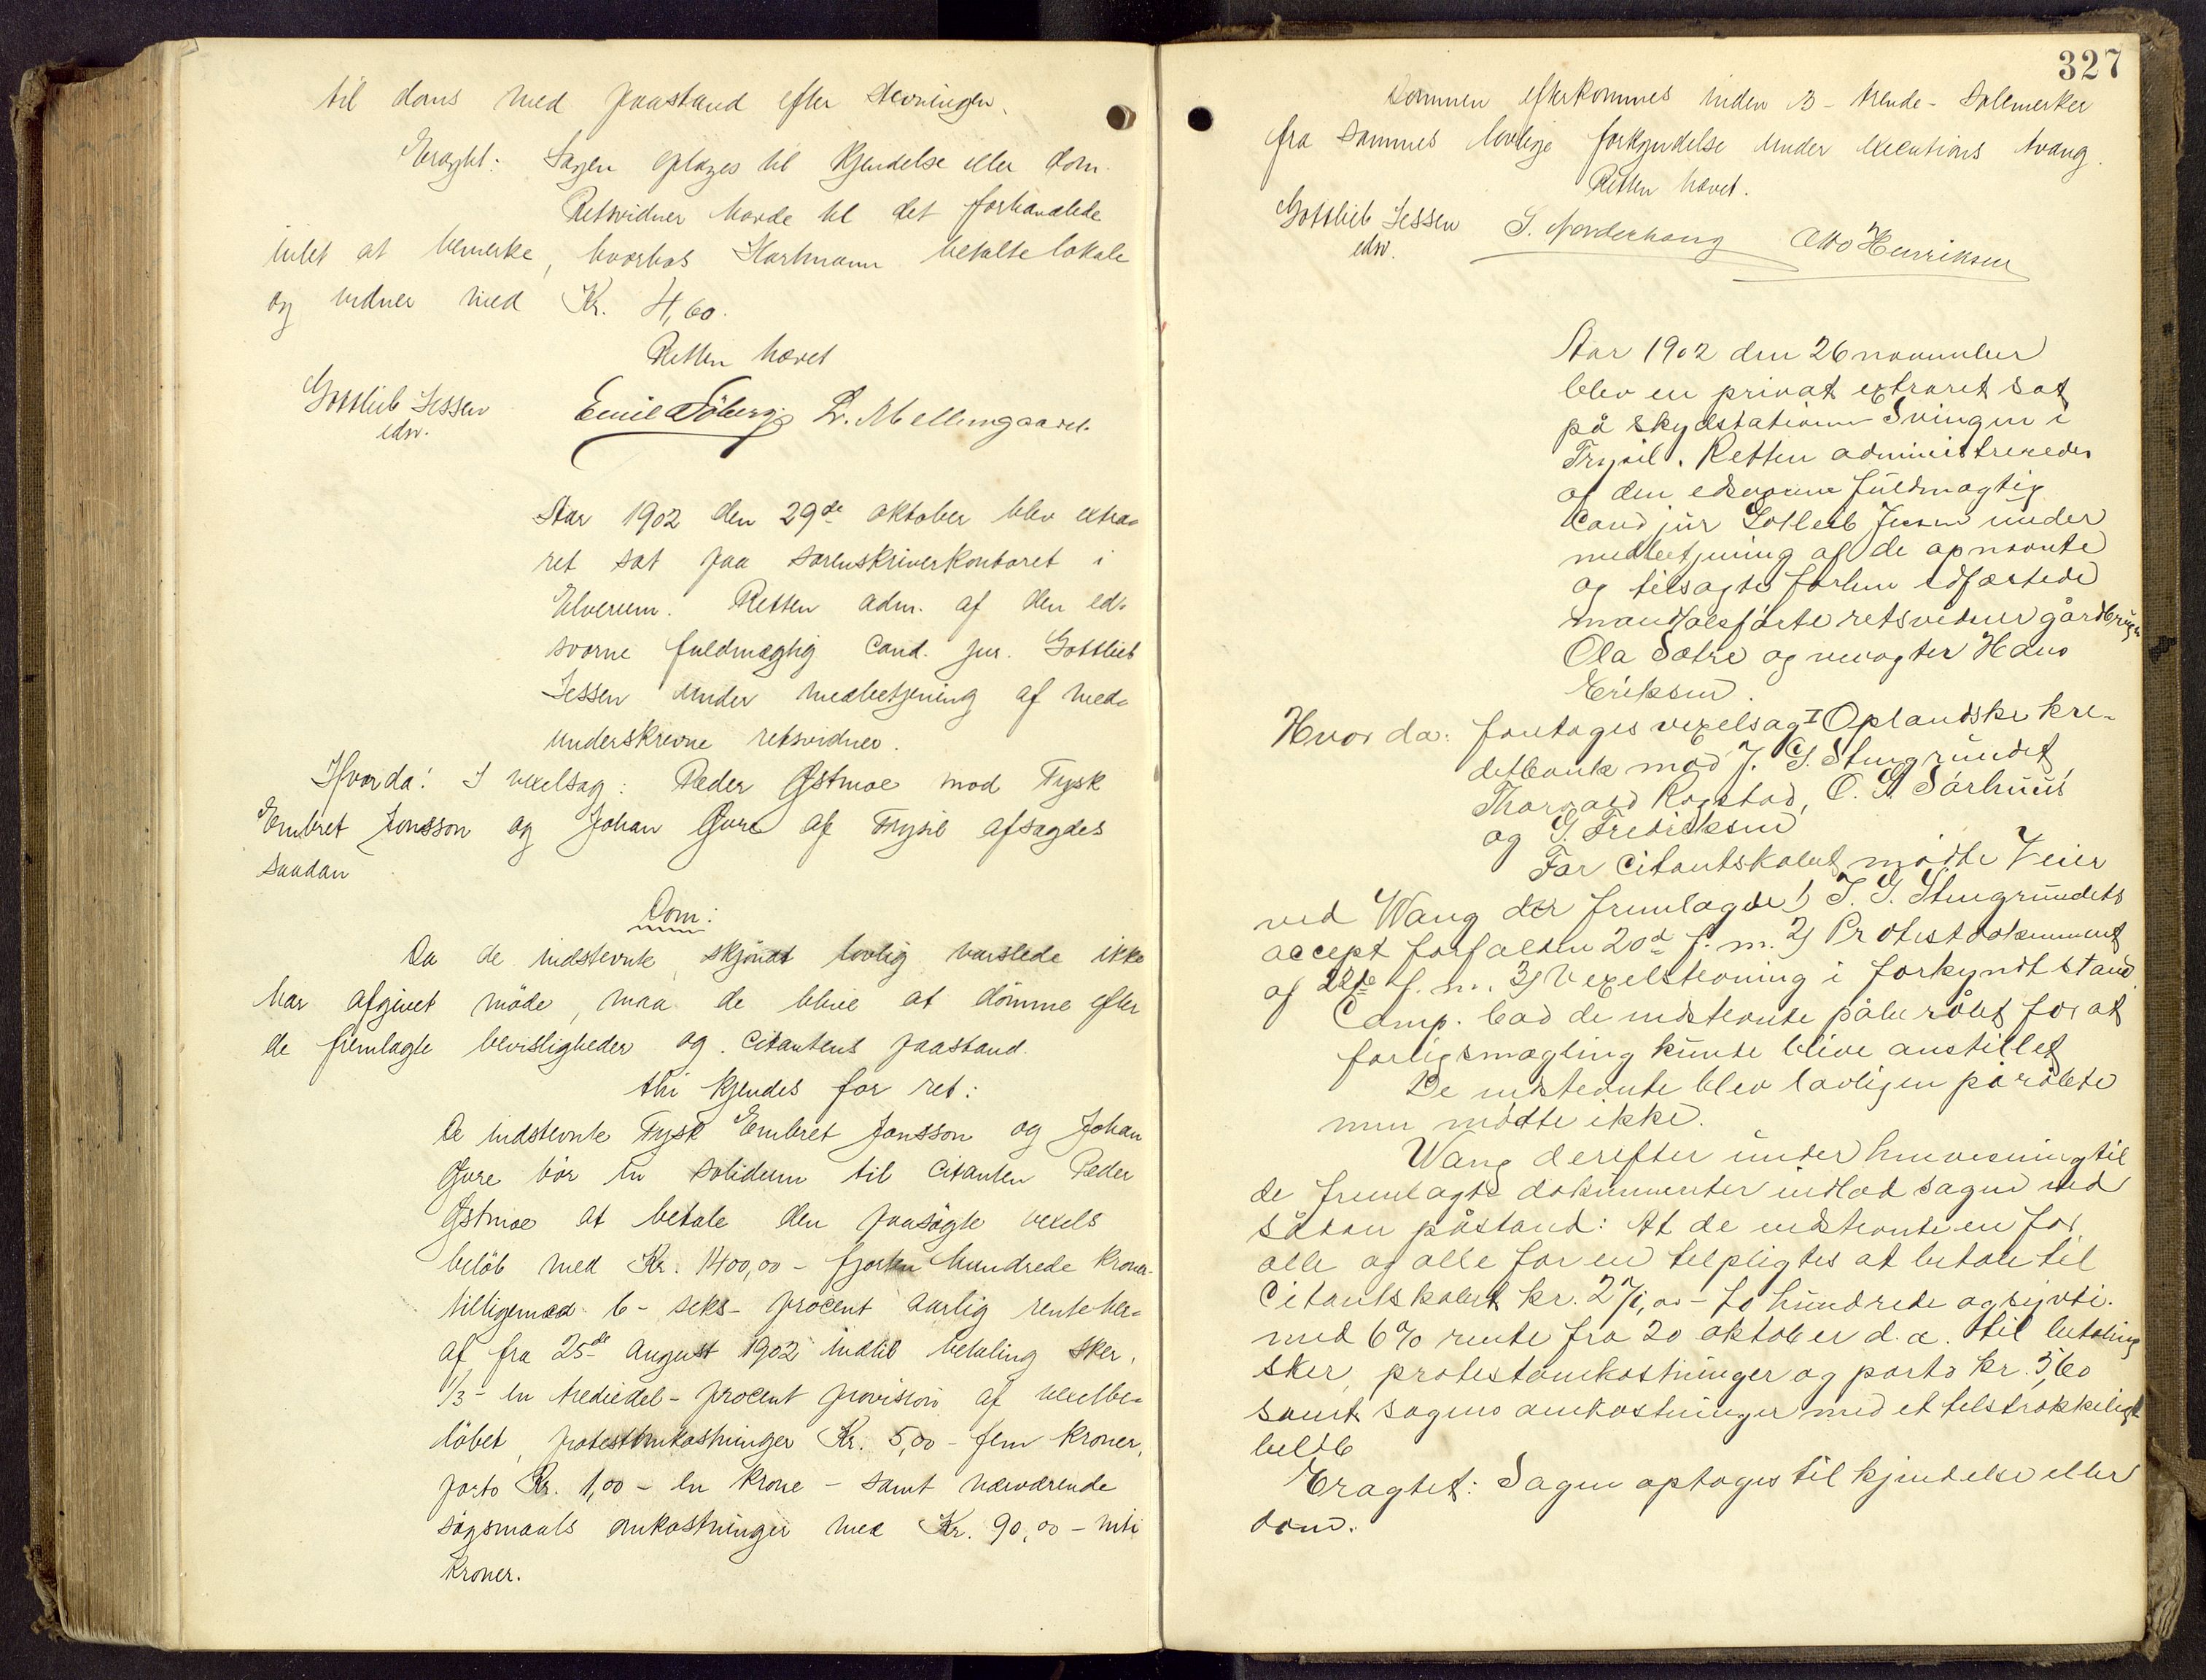 til doms med paastand efter stevningen.
Eragtet: Sagen optages til kjendelse eller dom.
Retsvidner havde til det forhandlede
intet at bemerke, hvorhos Hartmann betalte lokale
og vidner med Kr. 4,60.
Retten hævet
Gottlieb Jessen
edsv.
Emil Söberg L. Mellemgaard.
Aar 1902 den 29de oktober blev extra-
ret sat paa sorenskriverkontoret i
Elverum. Retten adm. af den ed-
svorne fuldmægtig cand. jur. Gottlieb
Jessen under medbetjening af med-
underskrevne retsvidner.
Hvorda: I vexelsag: Peder Østmoe mod Tysk
Embret Jonsson og Johan Gore af Trysil afsagdes
saadan
Dom:
Da de indstevnte skjöndt lovlig varslede ikke
har afgivet möde, maa de blive at dömme efter
de fremlagte bevisligheder og citantens paastand.
thi kjendes for ret:
De indstevnte Tysk Embret Jonsson og Johan
Gore bör in solidum til citanten Peder
Østmoe at betale den paasögte vexels
belöb med Kr. 1400,00 - fjorten hundrede kroner-
tilligemed 6 - seks - procent aarlig rente her-
af fra 25de august 1902 indtil betaling sker,
1/3 - en trediedel - procent provision af vexelbe-
löbet, protestomkostninger Kr. 5,00 - fem kroner,
porto Kr. 1,00 - en krone - samt nærværende
sögsmaals omkostninger med Kr. 90,00 - niti
kroner.
327
Dommen efterkommes inden 3 - trende - solemerker
fra sammes lovlige forkyndelse under executions tvang.
Retten hævet.
Gottlieb Jessen
edsv.
S. Norderhaug Otto Henriksen
Aar 1902 den 26 november
blev en privat extraret sat
på skydstationen Svingen i
Trysil. Retten administreredes
af den edsvorne fuldmægtig
Cand jur Gotlieb Jessen under
medbetjening af de opnævnte
og tilsagte forhen edfæstede
mandtalsførte retsvidner gårdbruger
Ola Sætre og
Hans
Eriksen.
Hvor da: foretoges vexelsag I Oplandske kre-
ditbank mod J. G. Stengrundet
Thorvald Rogstad, O. G. Sörhuus
og G. Fredriksen
For Citantskabet mödte Veier
ved Wang der fremlagde 1) J. G. Stengrundets
accept forfalden 20de f. m. 2) Protestdokument
af 22de f. m. 3) Vexelstevning i forkyndt stand.
Comp. bad de indstevnte påberåbt for at
forligsmægling kunde blive anstillet
De indstevnte blev lovligen påråbte
men mödte ikke.
Wang derefter under henvisning til
de fremlagte dokumenter indlod sagen med
sådan påstand: At de indstevnte en for
alle og alle for en tilpligtes at betale til
Citantskabet kr. 270,00 - to hundrede og sytti.
med 6% rente fra 20 oktober d. a. til betaling
sker, protestomkostninger og porto kr. 5,60
samt sagens omkostninger med et tilstrækkeligt
belöb
Eragtet: Sagen optoges til kjendelse eller
dom.